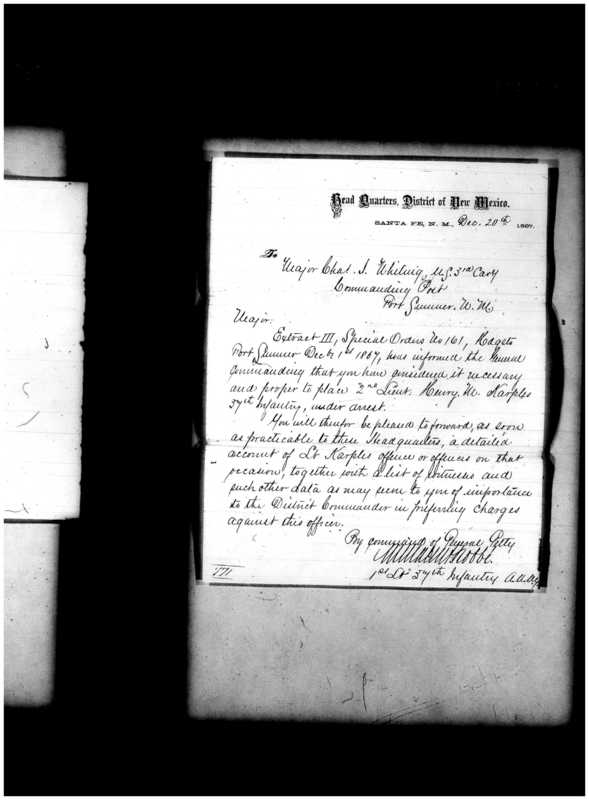 Head Quarters, District of New Mexico.
SANTA FE, N. M., Dec. 20th 1867.
To
Major Chas. J. Whiting, U.S. 3rd Cavy
Commanding Post
Fort Sumner, N. M.
Major.
Extract III, Special Orders No 161, Hdqts
Fort Sumner Decbr 1st 1867, has informed the General
Commanding that you have considered it necessary
and proper to place 2nd Lieut. Henry. M. Karples
37th Infantry, under arrest.
You will therefor be pleased to forward, as soon
as practicable to these Headquarters, a detailed
account of Lt Karples offence or offences on that
occasion, together with a list of witnesses and
such other data as may seem to you of importance
to the District Commander in preferring charges
against this officer.
By command of General Getty
1st Lt 37th Infantry